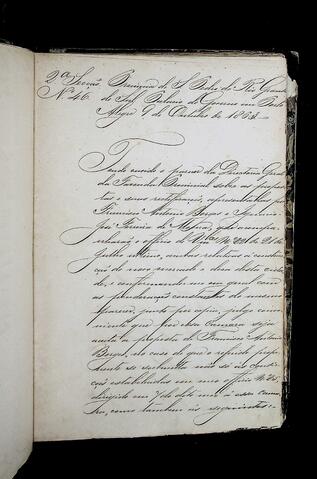 2ª Secção Provincia de S. Pedro do Rio Grande
Nº 46. do Sul Palacio do Governo em Porto
Alegre 9 de Outubro de 1863
Tendo ouvido o parecer da Directoria Geral
da Fazenda Provincial sobre as propos
tas e suas rectificação, apresentadas por
Francisco Antonio Borges e
José Ferreira de que acompa
nharão o officio de V.mces Nº de 21 de
Julho ultimo, ambas relativas á constru
cção do novo mercado e dóca desta cida
de, e conformando-me em geral com
as ponderações constantes do mesmo
parecer, junto por copia, julgo conve
niente que por essa Camara seja
aceita a proposta de Francisco Antonio
Borges, no caso de que o referido propo
nente se submetta não só ás condi
ções estabelecidas em meo officio Nº
dirigido em 7 de a essa cama
ra, como tambem ás seguintes: